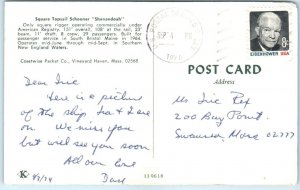 Square Topsail Schooner "Shenandoah"
Only square rigger operating commercially under
American Registry. 151' overall, 108' at the rail, 23'
beam, 11' draft, 8 crew, 29 passengers. Built for
passenger service in South Bristol Maine in 1964.
Operates mid-June through mid-Sept. in Southern
New England Waters.
Coastwise Packet Co., Vineyard Haven, Mass. 02568
Dear Inie
Here is a picture
of the ship Ira & I are
on. We miss you
but will see you soon
All our love
Dad
K
119618
SEP 4 PM
EISENHOWER·USA
8c
POST CARD
Address
Ms Inie Rex
200 Bay Point
Swansea, Mass 02777